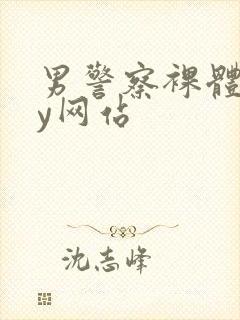 男警察裸體
y网佔
沈志峰